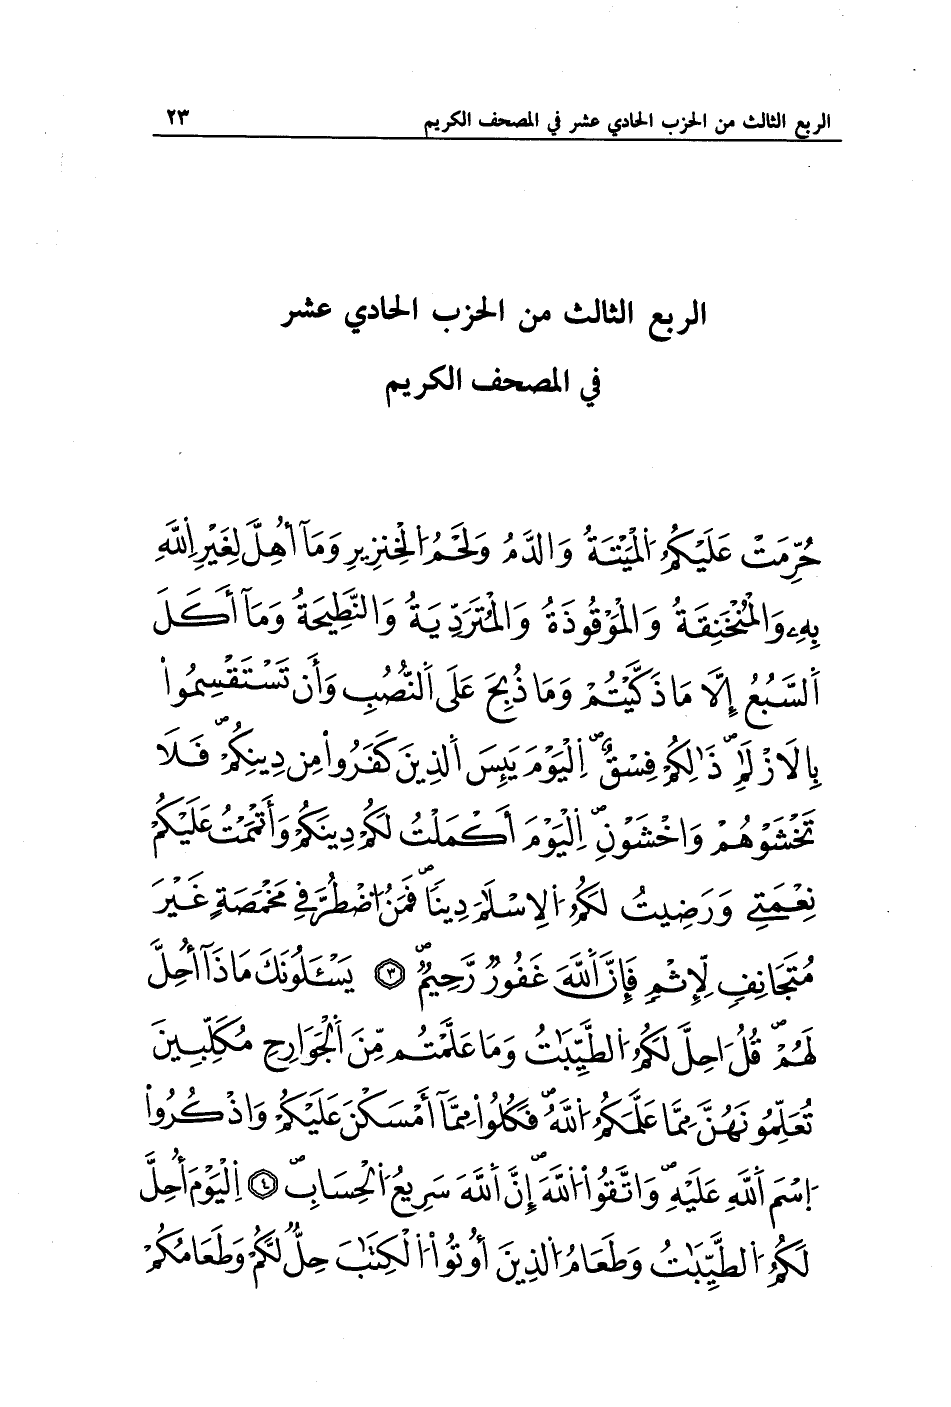 الربع الثالث من الحزب الحادي عشر في المصحف الكريم ٢٣
الربع الثالث من الحزب الحادي عشر
في المصحف الكريم
حُرِّمَتْ عَلَيْكُمُ اُ۬لْمَيْتَةُ وَالدَّمُ وَلَحْمُ اُ۬لْخِنزِيرِ وَمَآ أُهِلَّ لِغَيْرِ اِ۬للَّهِ
بِهِۦ وَالْمُنْخَنِقَةُ وَالْمَوْقُوذَةُ وَالْمُتَرَدِّيَةُ وَالنَّطِيحَةُ وَمَآ أَكَلَ
اَ۬لسَّبُعُ إِلَّا مَا ذَكَّيْتُمْ وَمَا ذُبِحَ عَلَى اَ۬لنُّصُبِ وَأَن تَسْتَقْسِمُواْ
بِالَازْلَٰمِۖ ذَٰلِكُمْ فِسْقٌۖ اِ۬لْيَوْمَ يَئِسَ اَ۬لذِينَ كَفَرُواْ مِن دِينِكُمْۖ فَلَا
تَخْشَوْهُمْ وَاخْشَوْنِۖ اِ۬لْيَوْمَ أَكْمَلْتُ لَكُمْ دِينَكُمْ وَأَتْمَمْتُ عَلَيْكُمْ
نِعْمَتِے وَرَضِيتُ لَكُمُ اُ۬لِاسْلَٰمَ دِيناٗۖ فَمَنُ اُ۟ضْطُرَّ فِے مَخْمَصَةٍ غَيْرَ
مُتَجَانِفٖ لِّإِثْمٖ فَإِنَّ اَ۬للَّهَ غَفُورٞ رَّحِيمٞۖ ٣ يَسْـَٔلُونَكَ مَاذَآ أُحِلَّ
لَهُمْۖ قُلُ ا۟حِلَّ لَكُمُ اُ۬لطَّيِّبَٰتُ وَمَا عَلَّمْتُم مِّنَ اَ۬لْجَوَارِحِ مُكَلِّبِينَ
تُعَلِّمُونَهُنَّ مِمَّا عَلَّمَكُمُ اُ۬للَّهُۖ فَكُلُواْ مِمَّآ أَمْسَكْنَ عَلَيْكُمْ وَاذْكُرُواْ
اُ۪سْمَ اَ۬للَّهِ عَلَيْهِۖ وَاتَّقُواْ اُ۬للَّهَۖ إِنَّ اَ۬للَّهَ سَرِيعُ اُ۬لْحِسَابِۖ ٤ اِ۬لْيَوْمَ أُحِلَّ
لَكُمُ اُ۬لطَّيِّبَٰتُ وَطَعَامُ اُ۬لذِينَ أُوتُواْ اُ۬لْكِتَٰبَ حِلّٞ لَّكُمْ وَطَعَامُكُمْ